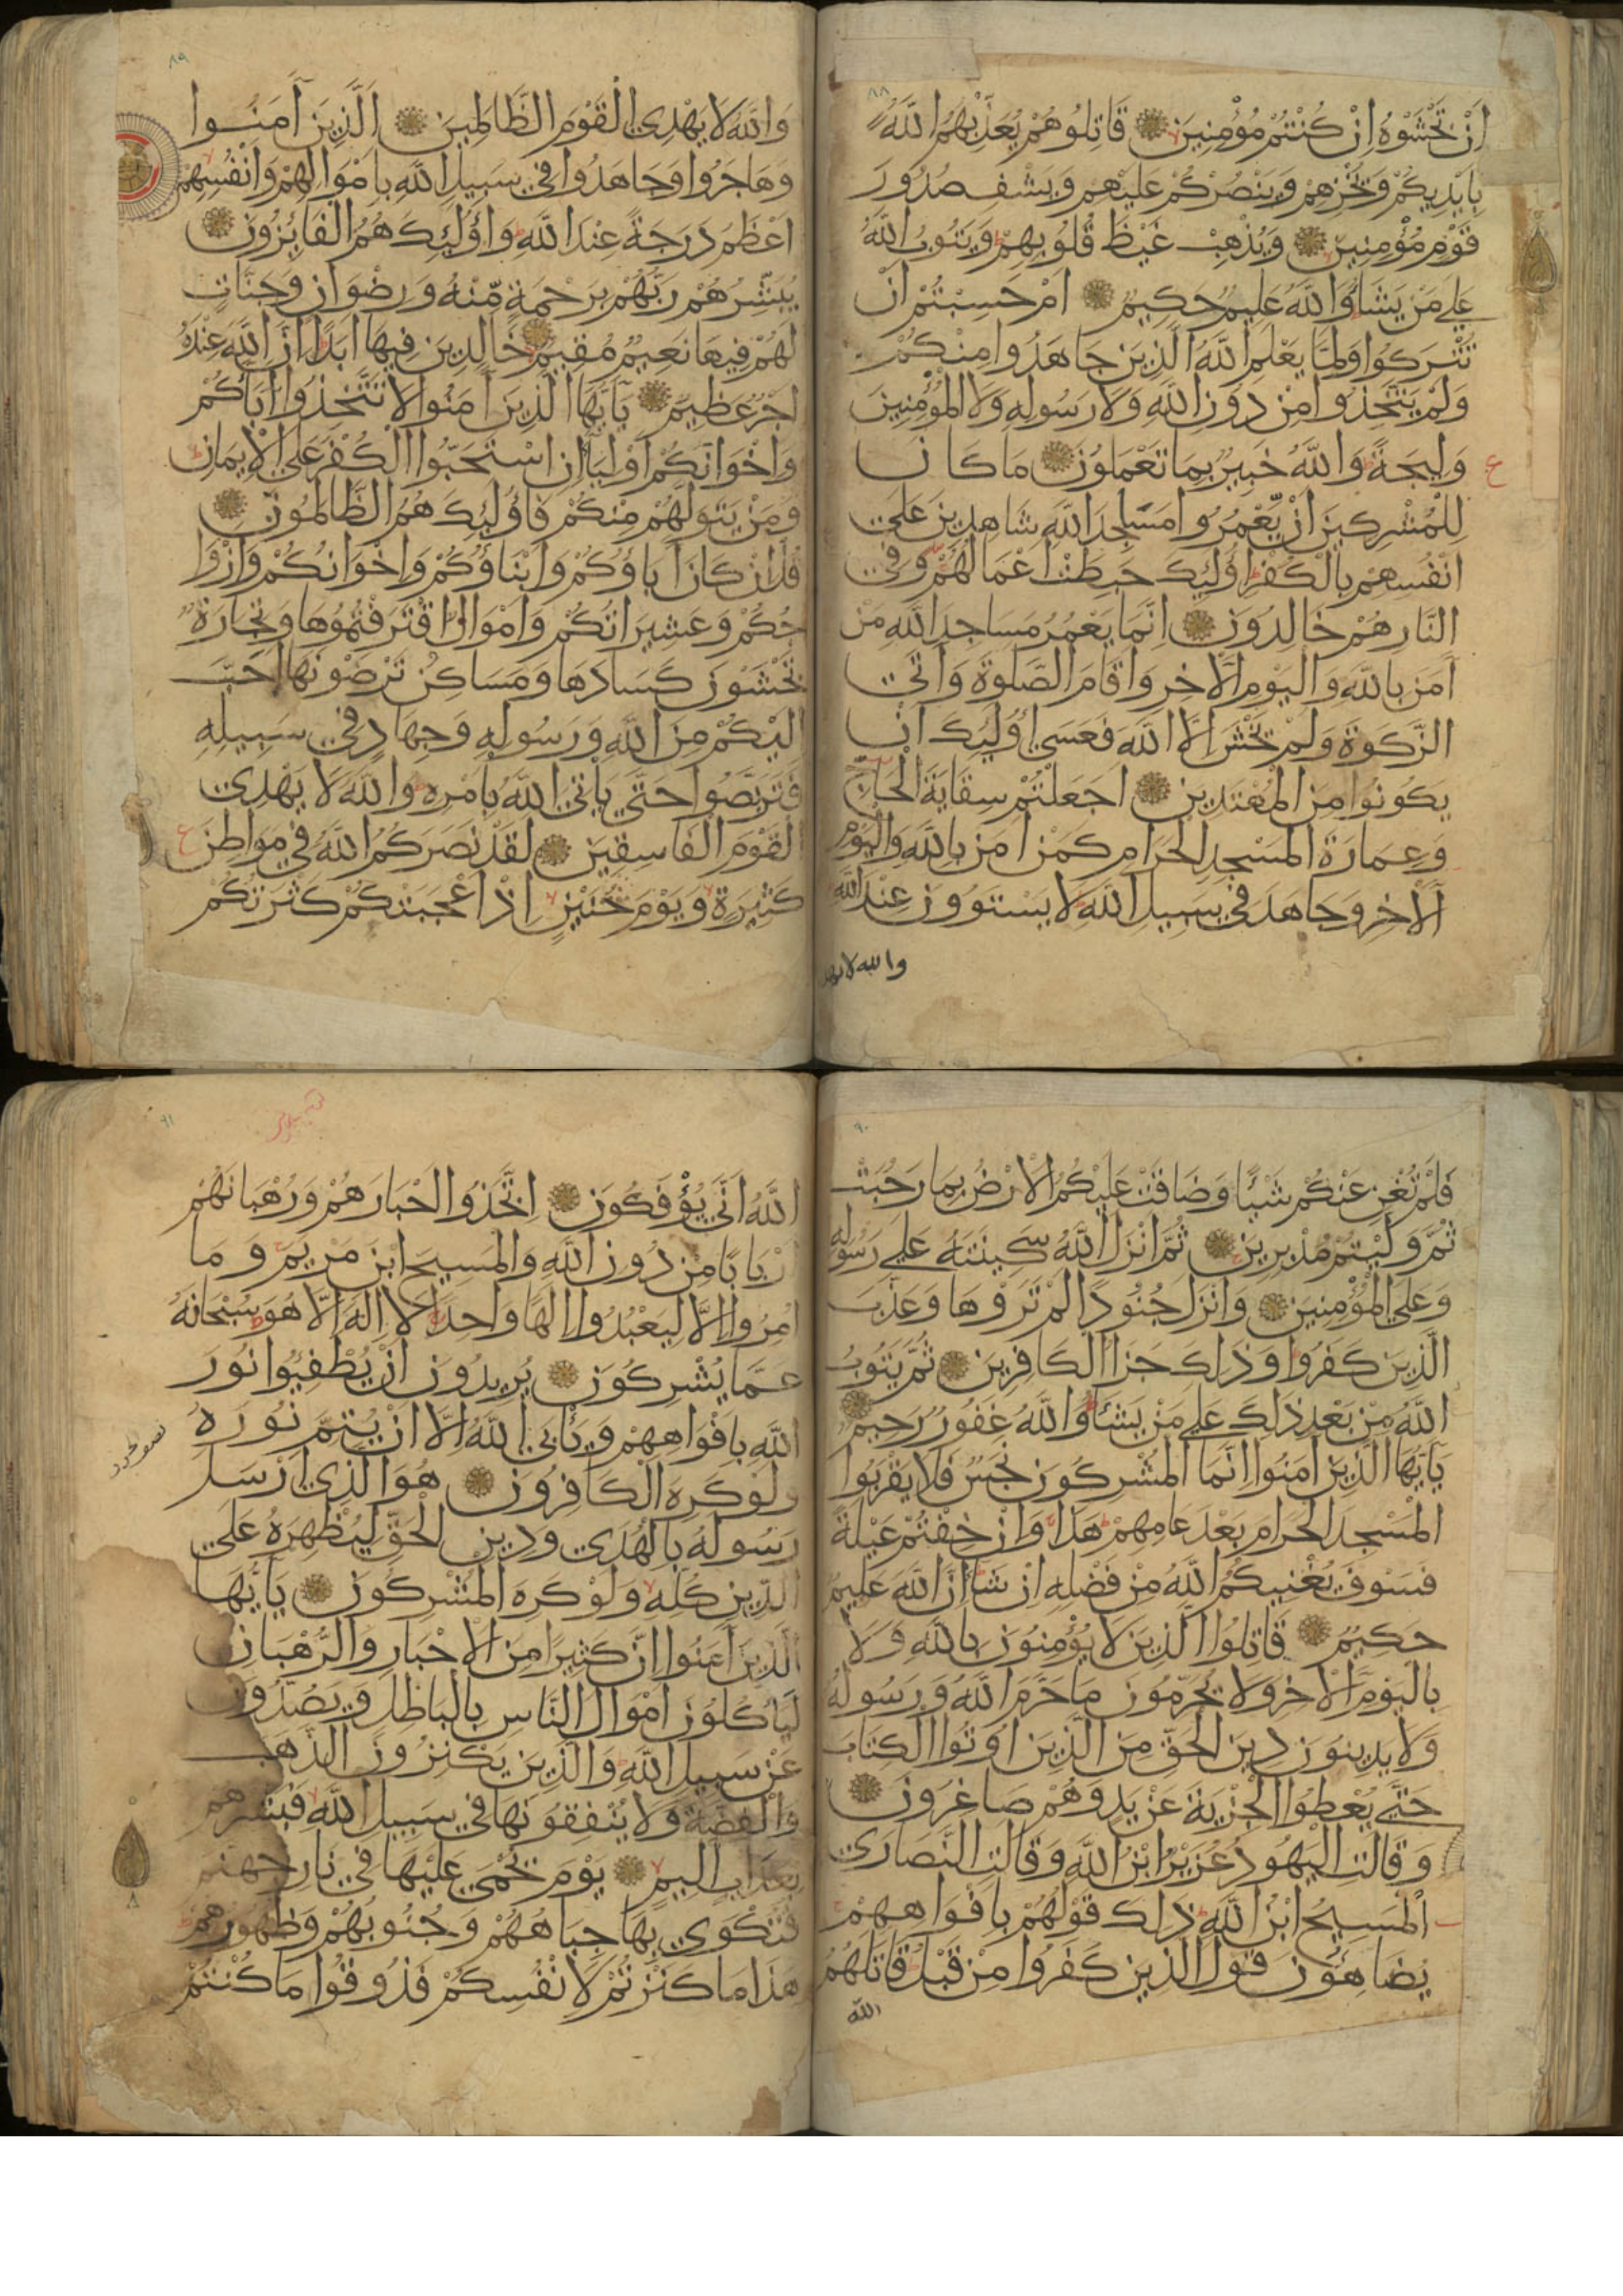 ٨٨
اَنْ تَخْشَوْهُ اِنْ كُنْتُمْ مُؤْمِنِينَ قَاتِلُوهُمْ يُعَذِّبْهُمُ اللَّهُ
بِاَيْدِيكُمْ وَيُخْزِهِمْ وَيَنْصُرْكُمْ عَلَيْهِمْ وَيَشْفِ صُدُورَ
قَوْمٍ مُؤْمِنِينَ وَيُذْهِبْ غَيْظَ قُلُوبِهِمْ وَيَتُوبُ اللَّهُ
عَلَى مَنْ يَشَاءُ وَاللَّهُ عَلِيمٌ حَكِيمٌ اَمْ حَسِبْتُمْ اَنْ
تُتْرَكُوا وَلَمَّا يَعْلَمِ اللَّهُ الَّذِينَ جَاهَدُوا مِنْكُمْ
وَلَمْ يَتَّخِذُوا مِنْ دُونِ اللَّهِ وَلَا رَسُولِهِ وَلَا الْمُؤْمِنِينَ
وَلِيجَةً وَاللَّهُ خَبِيرٌ بِمَا تَعْمَلُونَ مَا كَانَ
ع
لِلْمُشْرِكِينَ اَنْ يَعْمُرُوا مَسَاجِدَ اللَّهِ شَاهِدِينَ عَلَى
اَنْفُسِهِمْ بِالْكُفْرِ اُولَئِكَ حَبِطَتْ اَعْمَالُهُمْ وَفِي
النَّارِ هُمْ خَالِدُونَ اِنَّمَا يَعْمُرُ مَسَاجِدَ اللَّهِ مَنْ
آمَنَ بِاللَّهِ وَالْيَوْمِ الْآخِرِ وَاَقَامَ الصَّلٰوةَ وَآتَى
الزَّكٰوةَ وَلَمْ يَخْشَ اِلَّا اللَّهَ فَعَسَى اُولَئِكَ اَنْ
يَكُونُوا مِنَ الْمُهْتَدِينَ اَجَعَلْتُمْ سِقَايَةَ الْحَاجِّ
وَعِمَارَةَ الْمَسْجِدِ الْحَرَامِ كَمَنْ آمَنَ بِاللَّهِ وَالْيَوْمِ
الْآخِرِ وَجَاهَدَ فِي سَبِيلِ اللَّهِ لَا يَسْتَوُونَ عِنْدَ اللَّهِ
والله لا يهدى
٨٩
وَاللَّهُ لَا يَهْدِي الْقَوْمَ الظَّالِمِينَ اَلَّذِينَ آمَنُوا
وَهَاجَرُوا وَجَاهَدُوا فِي سَبِيلِ اللَّهِ بِاَمْوَالِهِمْ وَاَنْفُسِهِمْ
اَعْظَمُ دَرَجَةً عِنْدَ اللَّهِ وَاُولَئِكَ هُمُ الْفَائِزُونَ
يُبَشِّرُهُمْ رَبُّهُمْ بِرَحْمَةٍ مِنْهُ وَرِضْوَانٍ وَجَنَّاتٍ
لَهُمْ فِيهَا نَعِيمٌ مُقِيمٌ خَالِدِينَ فِيهَا اَبَدًا اِنَّ اللَّهَ عِنْدَهُ
اَجْرٌ عَظِيمٌ يَا اَيُّهَا الَّذِينَ آمَنُوا لَا تَتَّخِذُوا آبَاءَكُمْ
وَاِخْوَانَكُمْ اَوْلِيَاءَ اِنِ اسْتَحَبُّوا الْكُفْرَ عَلَى الْاِيمَانِ
وَمَنْ يَتَوَلَّهُمْ مِنْكُمْ فَاُولَئِكَ هُمُ الظَّالِمُونَ
قُلْ اِنْ كَانَ آبَاؤُكُمْ وَاَبْنَاؤُكُمْ وَاِخْوَانُكُمْ وَاَزْوَا
جُكُمْ وَعَشِيرَاتُكُمْ وَاَمْوَالٌ اقْتَرَفْتُمُوهَا وَتِجَارَةٌ
تَخْشَوْنَ كَسَادَهَا وَمَسَاكِنُ تَرْضَوْنَهَا اَحَبَّ
اِلَيْكُمْ مِنَ اللَّهِ وَرَسُولِهِ وَجِهَادٍ فِي سَبِيلِهِ
فَتَرَبَّصُوا حَتَّى يَأْتِيَ اللَّهُ بِاَمْرِهِ وَاللَّهُ لَا يَهْدِي
الْقَوْمَ الْفَاسِقِينَ لَقَدْ نَصَرَكُمُ اللَّهُ فِي مَوَاطِنَ
ع
كَثِيرَةٍ وَيَوْمَ حُنَيْنٍ اِذْ اَعْجَبَتْكُمْ كَثْرَتُكُمْ
٩٠
فَلَمْ تُغْنِ عَنْكُمْ شَيْئًا وَضَاقَتْ عَلَيْكُمُ الْاَرْضُ بِمَا رَحُبَتْ
ثُمَّ وَلَّيْتُمْ مُدْبِرِينَ ثُمَّ اَنْزَلَ اللَّهُ سَكِينَتَهُ عَلَى رَسُولِهِ
وَعَلَى الْمُؤْمِنِينَ وَاَنْزَلَ جُنُودًا لَمْ تَرَوْهَا وَعَذَّبَ
الَّذِينَ كَفَرُوا وَذَلِكَ جَزَاءُ الْكَافِرِينَ ثُمَّ يَتُوبُ
اللَّهُ مِنْ بَعْدِ ذَلِكَ عَلَى مَنْ يَشَاءُ وَاللَّهُ غَفُورٌ رَحِيمٌ
يَا اَيُّهَا الَّذِينَ آمَنُوا اِنَّمَا الْمُشْرِكُونَ نَجَسٌ فَلَا يَقْرَبُوا
الْمَسْجِدَ الْحَرَامَ بَعْدَ عَامِهِمْ هَذَا وَاِنْ خِفْتُمْ عَيْلَةً
فَسَوْفَ يُغْنِيكُمُ اللَّهُ مِنْ فَضْلِهِ اِنْ شَاءَ اِنَّ اللَّهَ عَلِيمٌ
حَكِيمٌ قَاتِلُوا الَّذِينَ لَا يُؤْمِنُونَ بِاللَّهِ وَلَا
بِالْيَوْمِ الْآخِرِ وَلَا يُحَرِّمُونَ مَا حَرَّمَ اللَّهُ وَرَسُولُهُ
وَلَا يَدِينُونَ دِينَ الْحَقِّ مِنَ الَّذِينَ اُوتُوا الْكِتَابَ
حَتَّى يُعْطُوا الْجِزْيَةَ عَنْ يَدٍ وَهُمْ صَاغِرُونَ
وَقَالَتِ الْيَهُودُ عُزَيْرٌ ابْنُ اللَّهِ وَقَالَتِ النَّصَارَى
الْمَسِيحُ ابْنُ اللَّهِ ذَلِكَ قَوْلُهُمْ بِاَفْوَاهِهِمْ
يُضَاهِؤُنَ قَوْلَ الَّذِينَ كَفَرُوا مِنْ قَبْلُ قَاتَلَهُمُ
الله
٩١
اللَّهُ اَنَّى يُؤْفَكُونَ اِتَّخَذُوا اَحْبَارَهُمْ وَرُهْبَانَهُمْ
اَرْبَابًا مِنْ دُونِ اللَّهِ وَالْمَسِيحَ ابْنَ مَرْيَمَ وَمَا
اُمِرُوا اِلَّا لِيَعْبُدُوا اِلَهًا وَاحِدًا لَا اِلَهَ اِلَّا هُوَ سُبْحَانَهُ
عَمَّا يُشْرِكُونَ يُرِيدُونَ اَنْ يُطْفِئُوا نُورَ
اللَّهِ بِاَفْوَاهِهِمْ وَيَأْبَى اللَّهُ اِلَّا اَنْ يُتِمَّ نُورَهُ
وَلَوْ كَرِهَ الْكَافِرُونَ هُوَ الَّذِي اَرْسَلَ
رَسُولَهُ بِالْهُدَى وَدِينِ الْحَقِّ لِيُظْهِرَهُ عَلَى
الدِّينِ كُلِّهِ وَلَوْ كَرِهَ الْمُشْرِكُونَ يَا اَيُّهَا
الَّذِينَ آمَنُوا اِنَّ كَثِيرًا مِنَ الْاَحْبَارِ وَالرُّهْبَانِ
لَيَأْكُلُونَ اَمْوَالَ النَّاسِ بِالْبَاطِلِ وَيَصُدُّونَ
عَنْ سَبِيلِ اللَّهِ وَالَّذِينَ يَكْنِزُونَ الذَّهَبَ
وَالْفِضَّةَ وَلَا يُنْفِقُونَهَا فِي سَبِيلِ اللَّهِ فَبَشِّرْهُمْ
بِعَذَابٍ اَلِيمٍ يَوْمَ يُحْمَى عَلَيْهَا فِي نَارِ جَهَنَّمَ
فَتُكْوَى بِهَا جِبَاهُهُمْ وَجُنُوبُهُمْ وَظُهُورُهُمْ
هَذَا مَا كَنَزْتُمْ لِاَنْفُسِكُمْ فَذُوقُوا مَا كُنْتُمْ